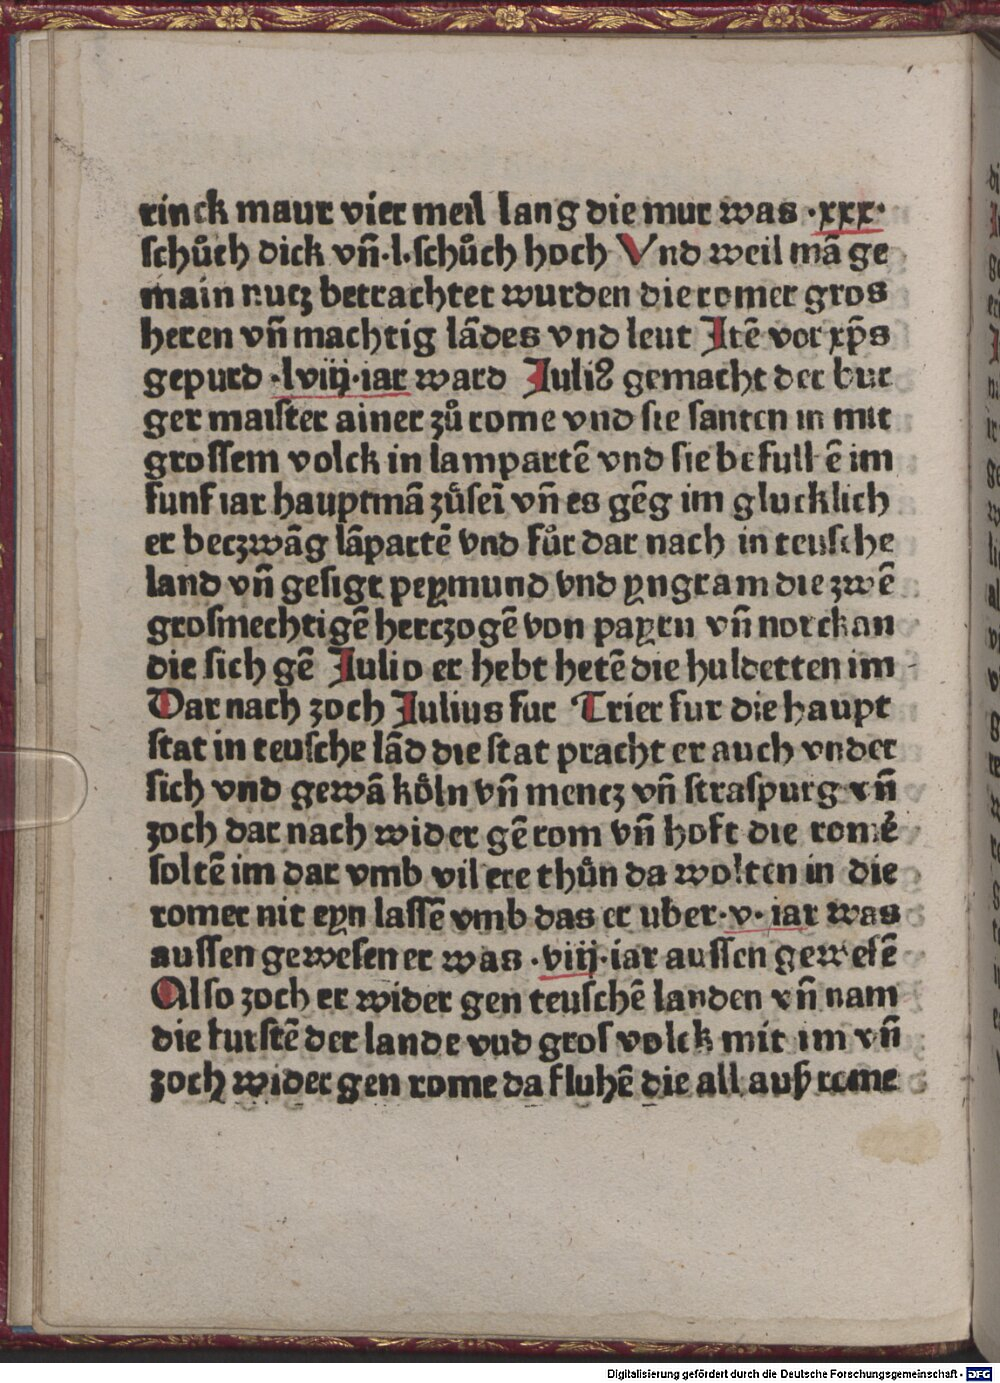 rinck maur vier meil lang die mur was ·xxx·
ſchůch dick vn̄·l·ſchůch hoch Vnd weil mā ge
main nucz betrachtet wurden die romer gros
heren vn̄ machtig lādes vnd leut Jtē vor xp̄s
gepurd ·lviij·iar ward Juliꝰ gemacht der bur
ger maiſter ainer zů rome vnd ſie ſanten in mit
groſſem volck in lampartē vnd ſie befulhē im
funf iar hauptmā zůſeī vn̄ es gēg im glucklich
er beczwāg lāpartē vnd fůr dar nach in teuſche
land vn̄ geſigt peymund vnd yngram die zwē
groſmechtigē herczogē von payrn vn̄ norckan
die ſich gē Julio er hebt hetē die huldetten im
Dar nach zoch Julius fur Trier fur die haupt
ſtat in teuſche lād die ſtat pracht er auch vnder
ſich vnd gewā kőln vn̄ mencz vn̄ ſtraſpurg vn̄
zoch dar nach wider gē rom vn̄ hoft die romē
ſoltē im dar vmb vil ere thůn da wolten in die
romer nit eyn laſſē vmb das er uber·v·iar was
auſſen geweſen er was ·viij·iar auſſen geweſē
Alſo zoch er wider gen teuſchē landen vn̄ nam
die furſtē der lande vnd groſ volck mit im vn̄
zoch wider gen rome da fluhē die all auß rome
Digitalisierung gefördert durch die Deutsche Forschungsgemeinschaft - DFG